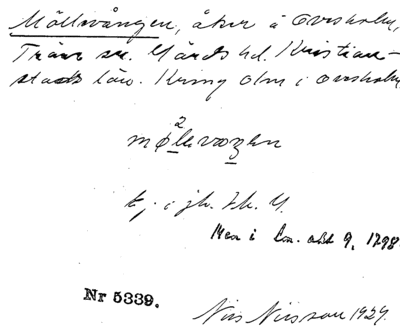 Möllevången, åker å Ovesholm,
Träne sn. Gärds hd. Kristian-
stads län. Kring Olm i Ovesholm
2
mølevaŋen
ej i jb. sk. U.
Men i Lm. akt 9, 1798.
Nr 5339.
Nils Nilsson 1929.